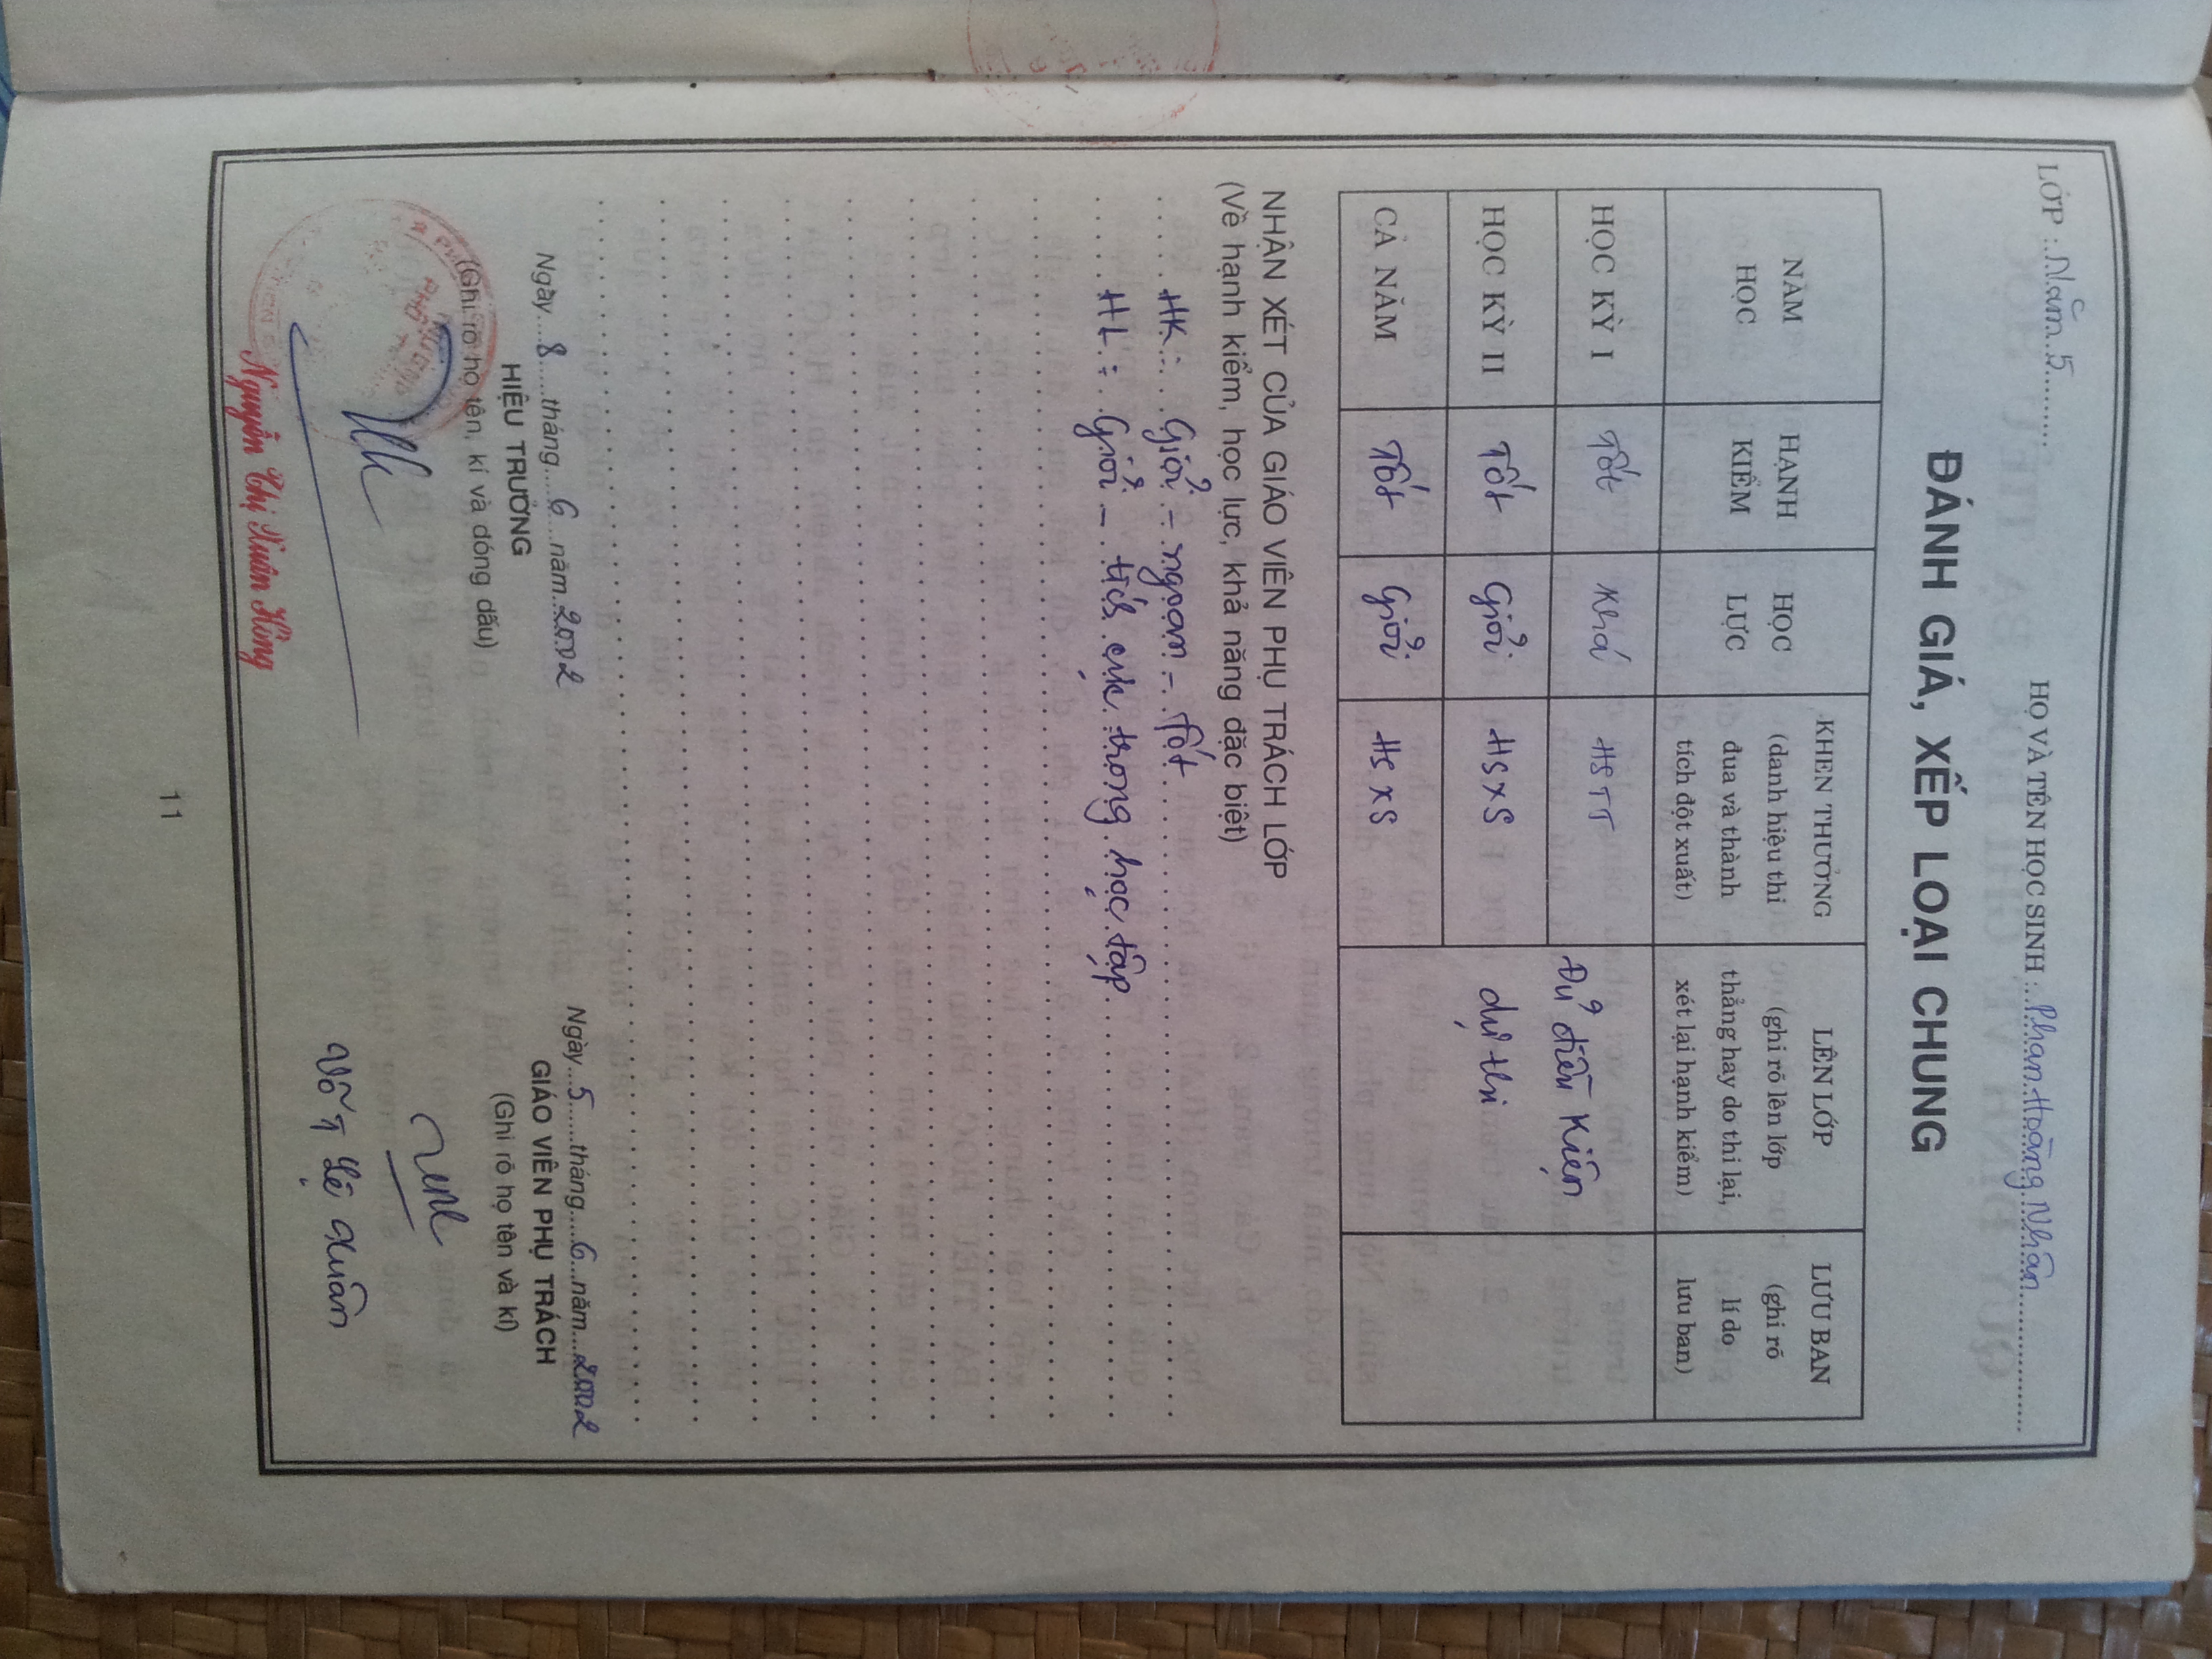 LỚP : Năm 5 HỌ VÀ TÊN HỌC SINH : Phan Hoàng Nhân
ĐÁNH GIÁ, XẾP LOẠI CHUNG
NĂM HỌC | HẠNH KIỂM | HỌC LỰC | KHEN THƯỞNG (danh hiệu thi đua và thành tích đột xuất) | LÊN LỚP (ghi rõ lên lớp thẳng hay do thi lại, xét lại hạnh kiểm) | LƯU BAN (ghi rõ lí do lưu ban)
HỌC KỲ I | Tốt | Khá | HSTT | Đủ điều kiện
HỌC KỲ II | Tốt | Giỏi | HSXS | dự thi
CẢ NĂM | Tốt | Giỏi | HSXS
NHẬN XÉT CỦA GIÁO VIÊN PHỤ TRÁCH LỚP
(Về hạnh kiểm, học lực, khả năng đặc biệt)
HK : Giỏi - ngoan - Tốt
HL : Giỏi - tích cực trong học tập
Ngày 8 tháng 6 năm 2002
HIỆU TRƯỞNG
(Ghi rõ họ tên, kí và đóng dấu)
Nguyễn Thị Xuân Hồng
Ngày 5 tháng 6 năm 2002
GIÁO VIÊN PHỤ TRÁCH
(Ghi rõ họ tên và kí)
Võ T Lệ Xuân
11